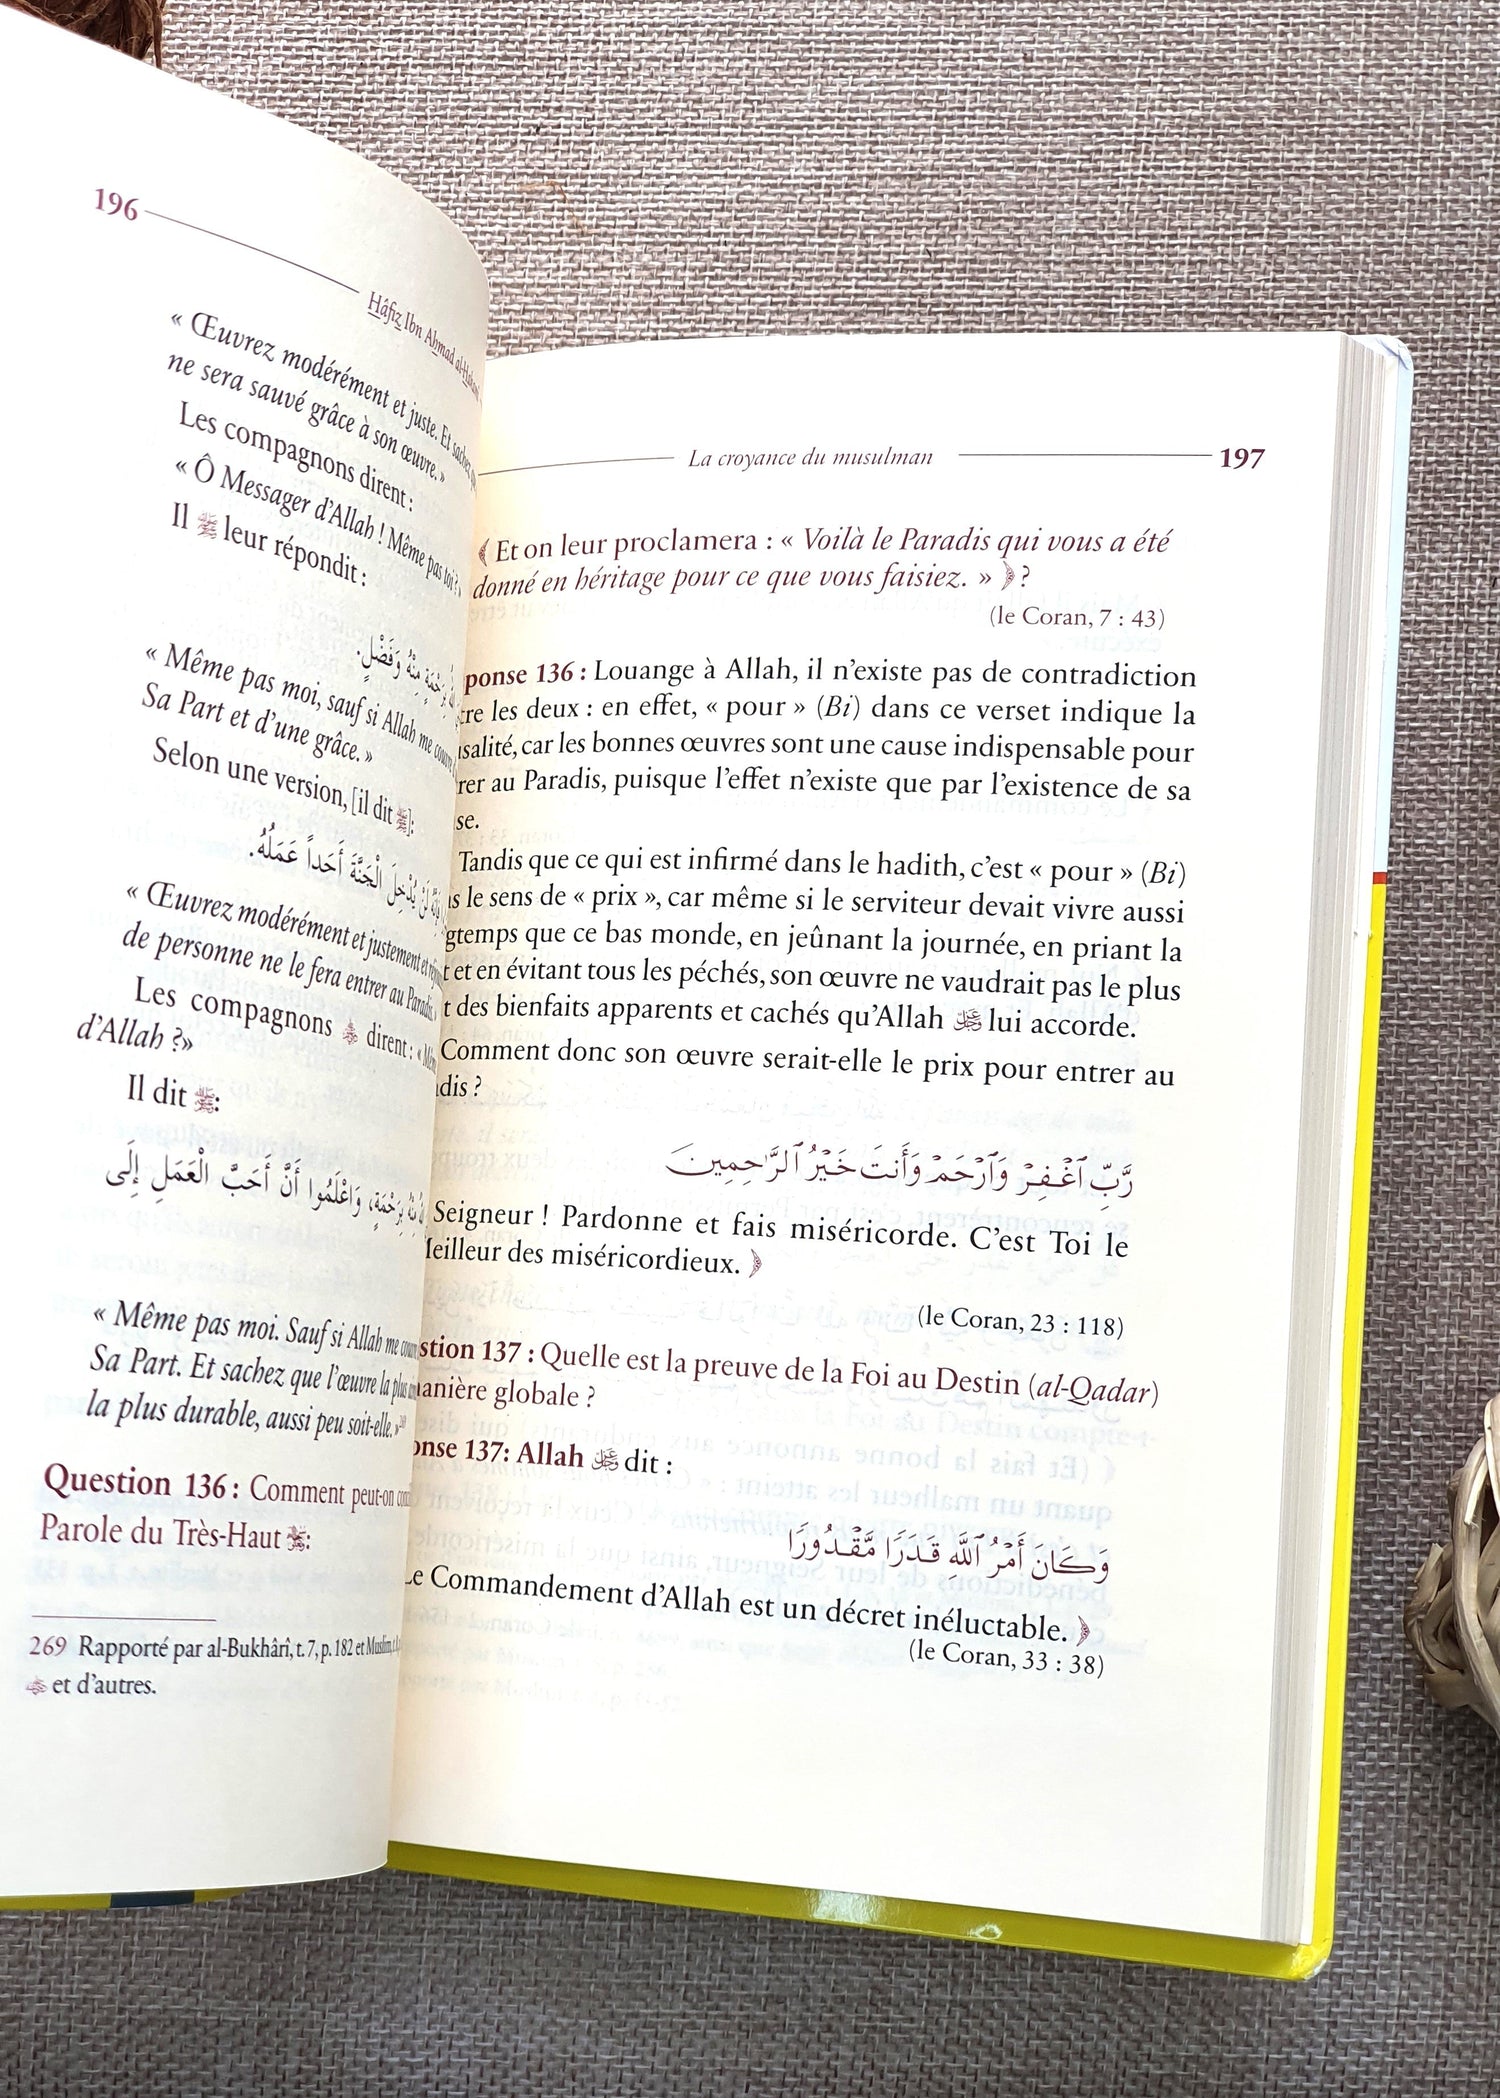 196
Hâfiz Ibn Ahmad al-Hakamî
« Œuvrez modérément et juste. Et sachez que
ne sera sauvé grâce à son œuvre. »
Les compagnons dirent :
« Ô Messager d’Allah ! Même pas toi ? »
Il ﷺ leur répondit :
بِرَحْمَةٍ مِنْهُ وَفَضْلٍ.
« Même pas moi, sauf si Allah me couvre
Sa Part et d’une grâce. »
Selon une version, [il dit ﷺ]:
لَنْ يُدْخِلَ الْجَنَّةَ أَحَداً عَمَلُهُ.
« Œuvrez modérément et justement et
de personne ne le fera entrer au Paradis.
Les compagnons dirent : « Même
d’Allah ?»
Il dit ﷺ:
بِرَحْمَةٍ، وَاعْلَمُوا أَنَّ أَحَبَّ الْعَمَلِ إِلَى
« Même pas moi. Sauf si Allah me
Sa Part. Et sachez que l’œuvre la plus
la plus durable, aussi peu soit-elle.»
Question 136 : Comment peut-on
Parole du Très-Haut :
269 Rapporté par al-Bukhârî, t.7, p. 182 et Muslim,
et d’autres.
La croyance du musulman
197
﴾ Et on leur proclamera : « Voilà le Paradis qui vous a été
donné en héritage pour ce que vous faisiez. » ﴿ ?
(le Coran, 7 : 43)
ponse 136 : Louange à Allah, il n’existe pas de contradiction
tre les deux : en effet, « pour » (Bi) dans ce verset indique la
salité, car les bonnes œuvres sont une cause indispensable pour
rer au Paradis, puisque l’effet n’existe que par l’existence de sa
se.
Tandis que ce qui est infirmé dans le hadith, c’est « pour » (Bi)
s le sens de « prix », car même si le serviteur devait vivre aussi
gtemps que ce bas monde, en jeûnant la journée, en priant la
t et en évitant tous les péchés, son œuvre ne vaudrait pas le plus
t des bienfaits apparents et cachés qu’Allah lui accorde.
Comment donc son œuvre serait-elle le prix pour entrer au
dis ?
رَّبِّ ٱغْفِرْ وَٱرْحَمْ وَأَنتَ خَيْرُ ٱلرَّٰحِمِينَ
Seigneur ! Pardonne et fais miséricorde. C’est Toi le
Meilleur des miséricordieux. ﴿
(le Coran, 23 : 118)
stion 137 : Quelle est la preuve de la Foi au Destin (al-Qadar)
anière globale ?
onse 137: Allah dit :
وَكَانَ أَمْرُ ٱللَّهِ قَدَرًا مَّقْدُورًا
Le Commandement d’Allah est un décret inéluctable. ﴿
(le Coran, 33 : 38)